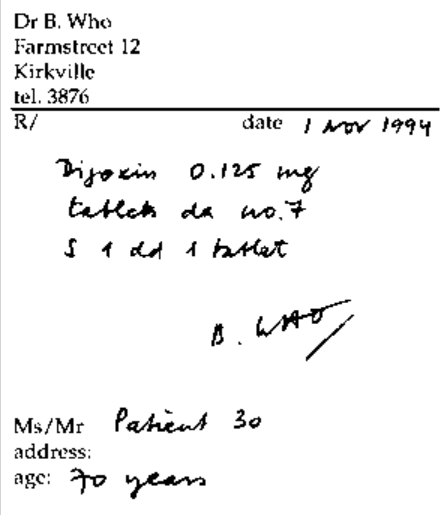 Dr B. Who
Farmstreet 12
Kirkville
tel. 3876
R/ date 1 Nov 1994
Digoxin 0.125 mg
tablets da no.7
S 1 dd 1 tablet
B. WHO
Ms/Mr Patient 30
address:
age: 70 years